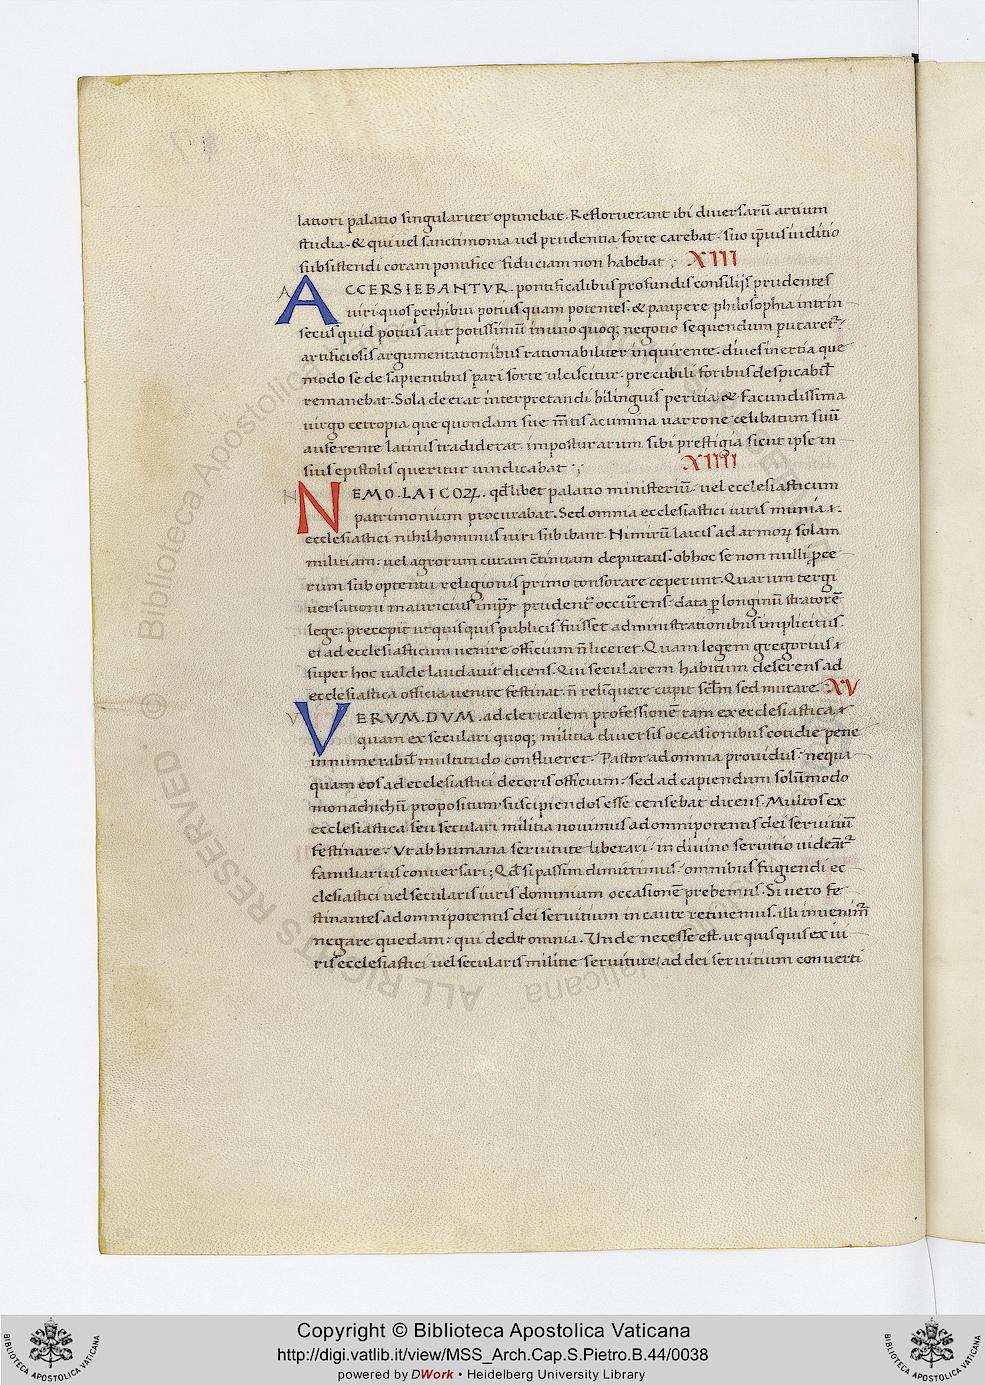 latiori palatio singulariter optinebat. Refloruerant ibi diuersarū artium
studia. & qui uel sanctimonia uel prudentia forte carebat. suo ip̄ius iuditio
subsistendi coram pontifice fiduciam non habebat ; XIII
ACCERSIEBANTVR. pontificalibus profundis consilijs prudentes
uiri. quos perhibui potius quam potentes. & paupere philosophia intrin
secus quid potius aut potissimū in uno quoq; negotio sequendum putaret?
artificiosis argumentationibus rationabiliter inquirente. diues inertia que
modo se de sapientibus pari sorte ulciscitur. pre cubili foribus despicabil̄
remanebat. Sola deerat interpretandi bilinguis peritia. & facundissima
uirgo cetropia que quondam sue m̄tis acumina uarrone celibatum suū
auferente latinis tradiderat. imposturarum sibi prestigia sicut ipse in
suis epistolis queritur uindicabat ; XIIII
NEMO. LAICOꝜ. qđlibet palatio ministeriū. uel ecclesiasticum
patrimonium procurabat. Sed omnia ecclesiastici iuris munia.
ecclesiastici nihilhominus uiri subibant. Nimirū laicis ad armoꝝ solam
militiam. uel agrorum curam c̄tinuam deputatis. ob hoc se non nulli p̱ce
rum sub optentu religionis primo tonsorare ceperunt. Quarum tergi
uersationi mauricius imp̄r prudent̄ occurrens. data p̱ longinū stratorē
lege. precepit ut quisquis publicis fuisset administrationibus implicitus.
ei ad ecclesiasticum uenire officium n̄ liceret. Quam legem gregorius
super hoc ualde laudauit dicens. Qui secularem habitum deserens ad
ecclesiastica officia uenire festinat. n̄ relīquere cupit sc̄lm sed mutare. XV
VERVM. DVM. ad clericalem professionē tam ex ecclesiastica.
quam ex seculari quoq; militia diuersis occasionibus cotidie pene
innumerabil̄ multitudo conflueret. Pastor ad omnia prouidus. nequa
quam eos ad ecclesiastici decoris officium. sed ad capiendum solūmodo
monachichū propositum. suscipiendos esse censebat dicens. Multos ex
ecclesiastica seu seculari militia nouimus ad omnipotentis dei seruitiū
festinare. Vt ab humana seruitute liberari. in diuino seruitio uideant̄
familiarius conuersari; Qđ si passim dimittimus. omnibus fugiendi ec
clesiastici uel secularis iuris dominium occasionē prebemus. Si uero fe
stinantes ad omnipotentis dei seruitium incaute retinemus. illi inuenimr̄
negare quedam. qui dedit omnia. Vnde necesse est. ut quisquis ex iu
ris ecclesiastici uel secularis militie seruitute. ad dei seruitium conuerti
Copyright © Biblioteca Apostolica Vaticana
http://digi.vatlib.it/view/MSS_Arch.Cap.S.Pietro.B.44/0038
powered by DWork • Heidelberg University Library